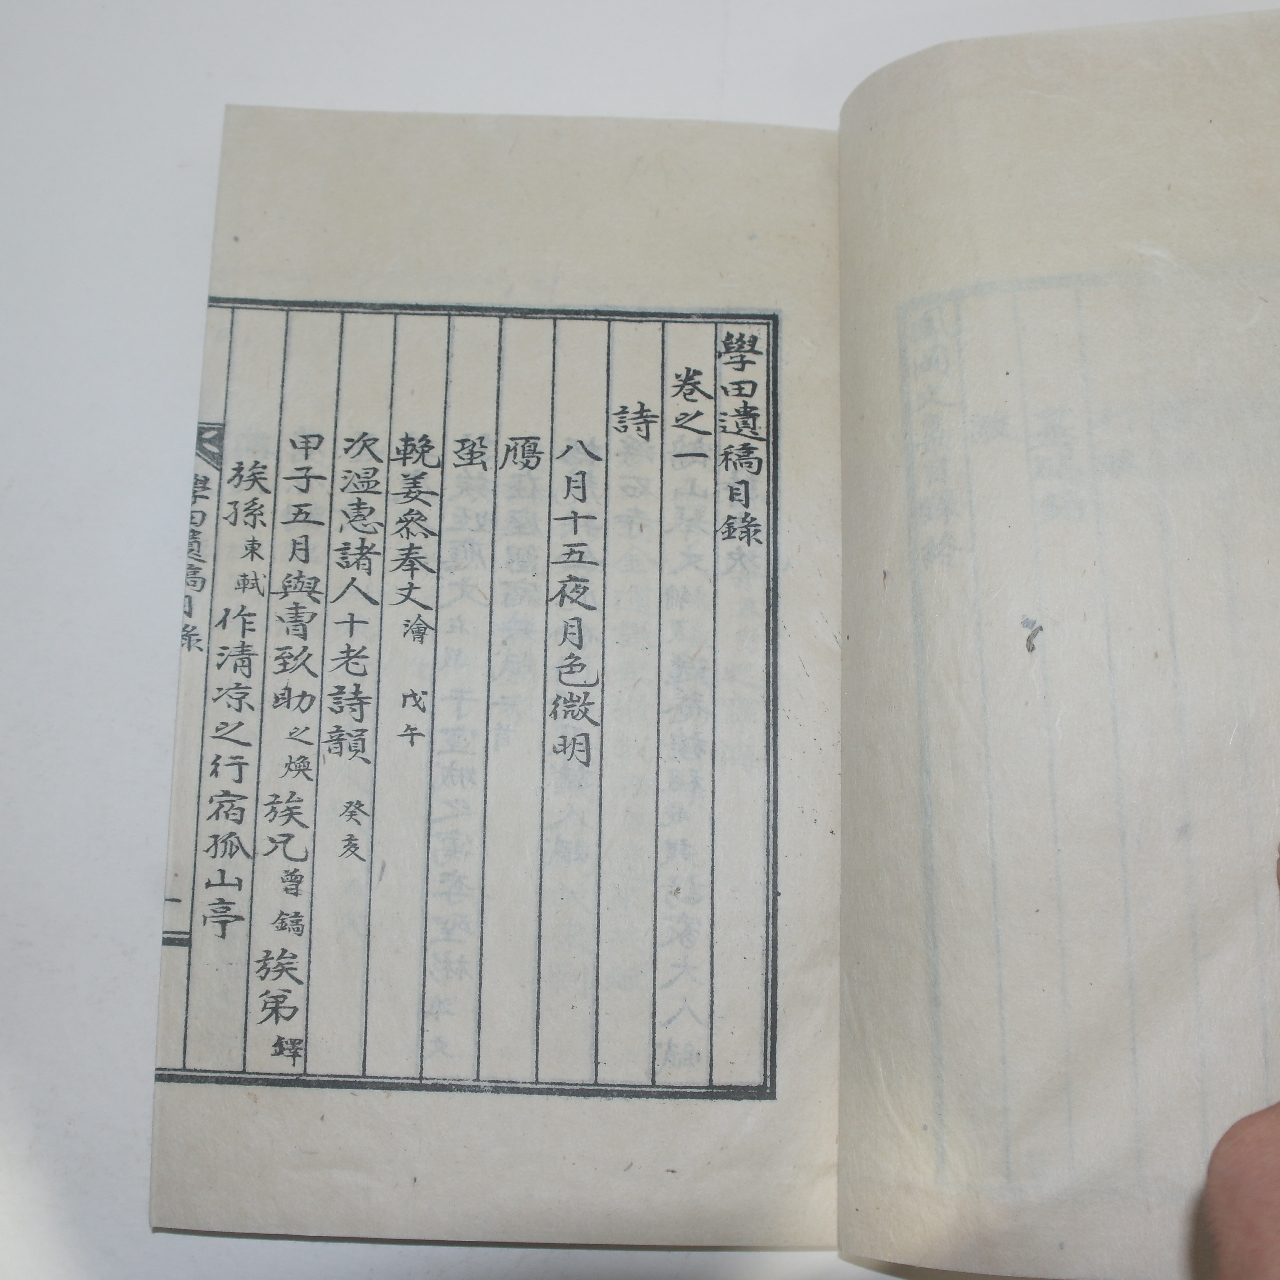 學田遺稿目錄
卷之一
詩
八月十五夜月色微明
鴈
蛩
輓姜參奉丈 濬 戊午
次溫惠諸人十老詩韻 癸亥
甲子五月與胄致助 之煥 族兄 曾鎬 族弟 鐸
族孫 東軾 作淸凉之行宿孤山亭
學田遺稿目錄
一